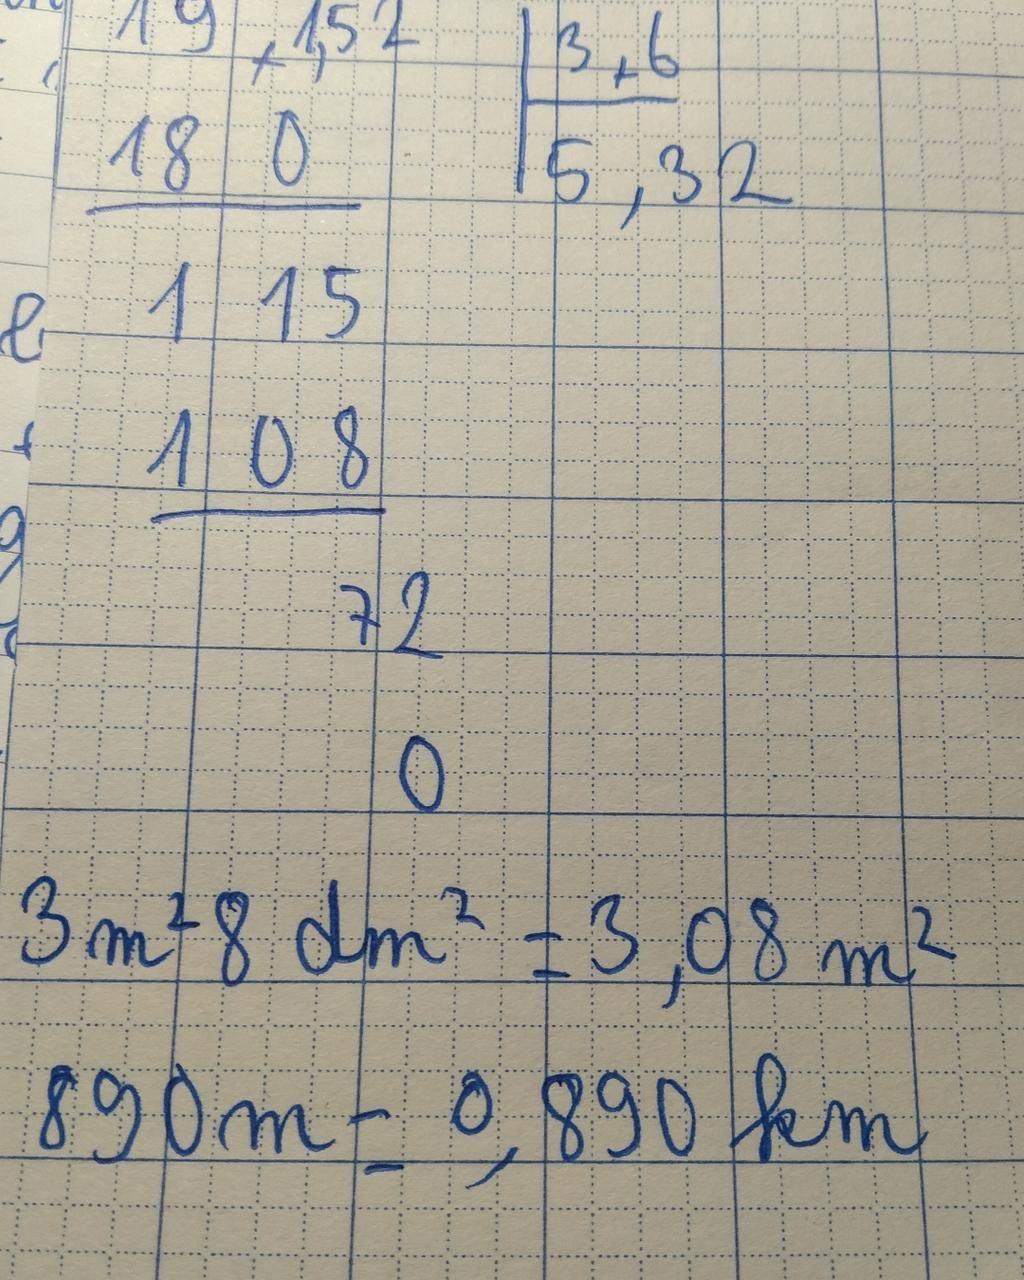 19,1,52 3,6
18 0 5,32
1 15
1 0 8
72
0
3 m² 8 dm² = 3,08 m²
890 m = 0,890 km